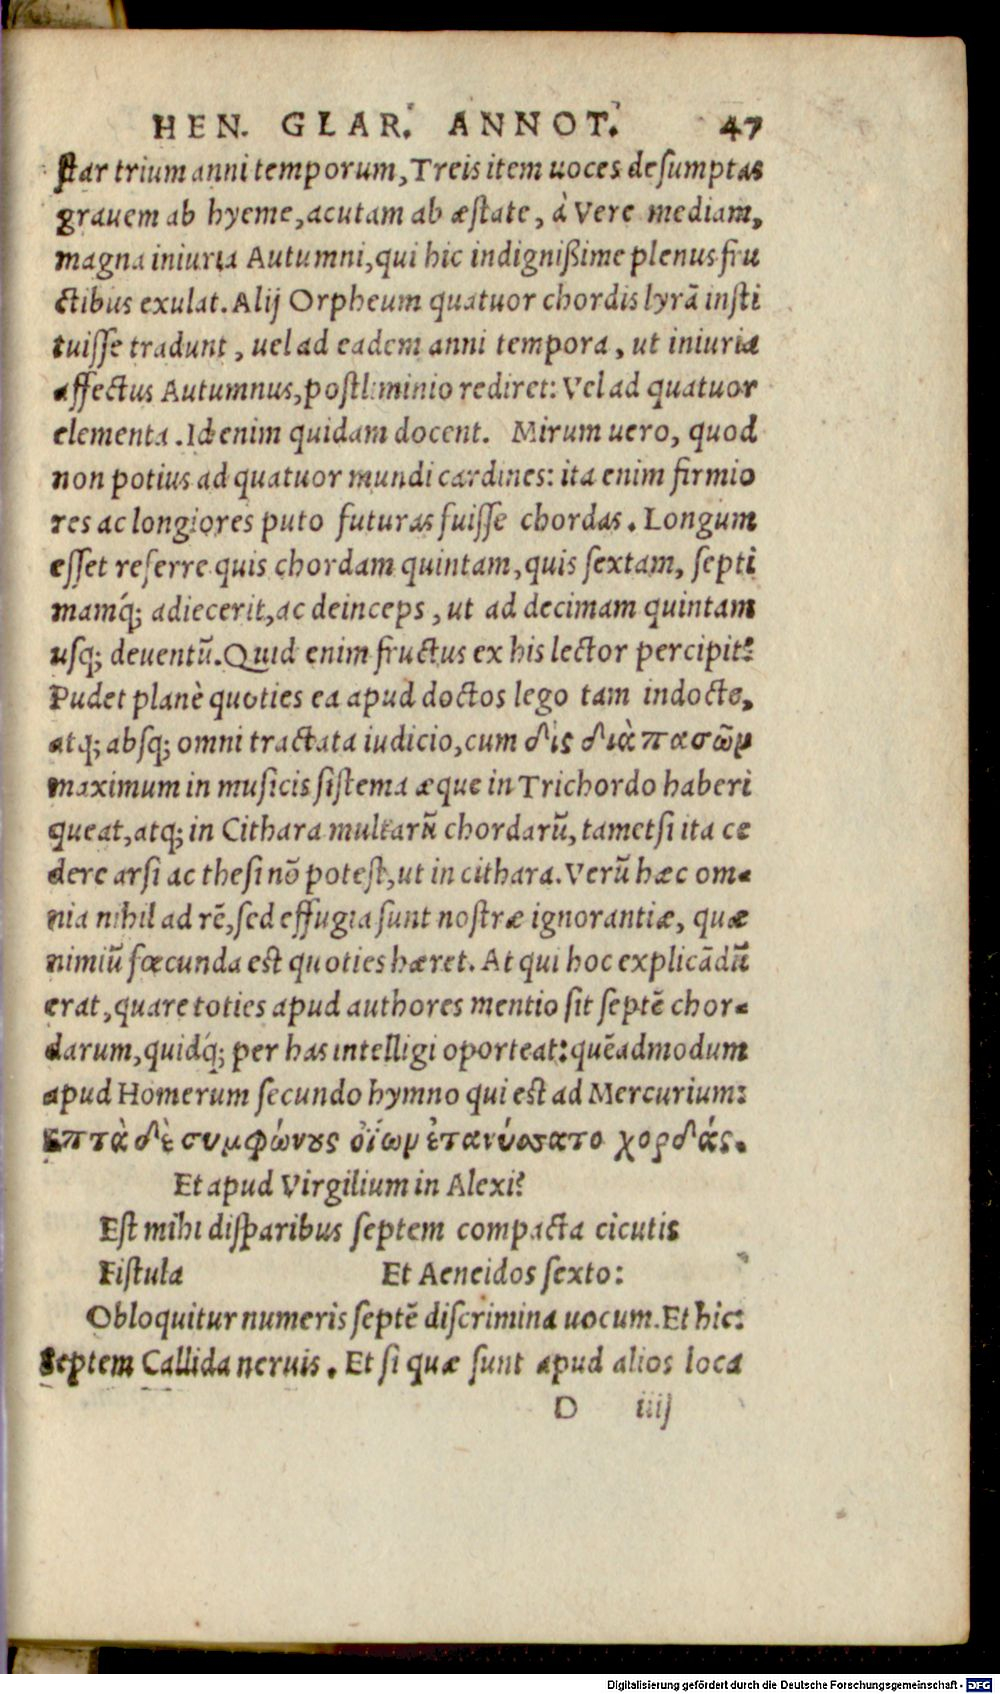 HEN. GLAR. ANNOT. 47
ſtar trium anni temporum, Treis item uoces deſumptas
grauem ab hyeme, acutam ab æſtate, à Vere mediam,
magna iniuria Autumni, qui hic indignißime plenus fru
ctibus exulat. Alij Orpheum quatuor chordis lyrā inſti
tuiſſe tradunt, uel ad eadem anni tempora, ut iniuria
affectus Autumnus, poſtliminio rediret: Vel ad quatuor
elementa. Id enim quidam docent. Mirum uero, quod
non potius ad quatuor mundi cardines: ita enim firmio
res ac longiores puto futuras fuiſſe chordas. Longum
eſſet referre quis chordam quintam, quis ſextam, ſepti
mamq́; adiecerit, ac deinceps, ut ad decimam quintam
uſq; deuentũ. Quid enim fructus ex his lector percipit?
Pudet planè quoties ea apud doctos lego tam indocte,
atq; abſq; omni tractata iudicio, cum δὶς διὰ πασῶν
maximum in muſicis ſiſtema æque in Trichordo haberi
queat, atq; in Cithara multarũ chordarũ, tametſi ita ce
dere arſi ac theſi nō poteſt, ut in cithara. Verũ hæc om-
nia nihil ad rē, ſed effugia ſunt noſtræ ignorantiæ, quæ
nimiũ fœcunda eſt quoties hæret. At qui hoc explicādũ
erat, quare toties apud authores mentio ſit ſeptē chor-
darum, quidq́; per has intelligi oporteat: quēadmodum
apud Homerum ſecundo hymno qui eſt ad Mercurium:
Επτὰ δὲ συμφώνους ὀΐων ἐτανύσατο χορδάς.
Et apud Virgilium in Alexi?
Eſt mihi diſparibus ſeptem compacta cicutis
Fiſtula Et Aeneidos ſexto:
Obloquitur numeris ſeptē diſcrimina uocum. Et hic:
Septem Callida neruis. Et ſi quæ ſunt apud alios loca
D iiij
Digitalisierung gefördert durch die Deutsche Forschungsgemeinschaft - DFG